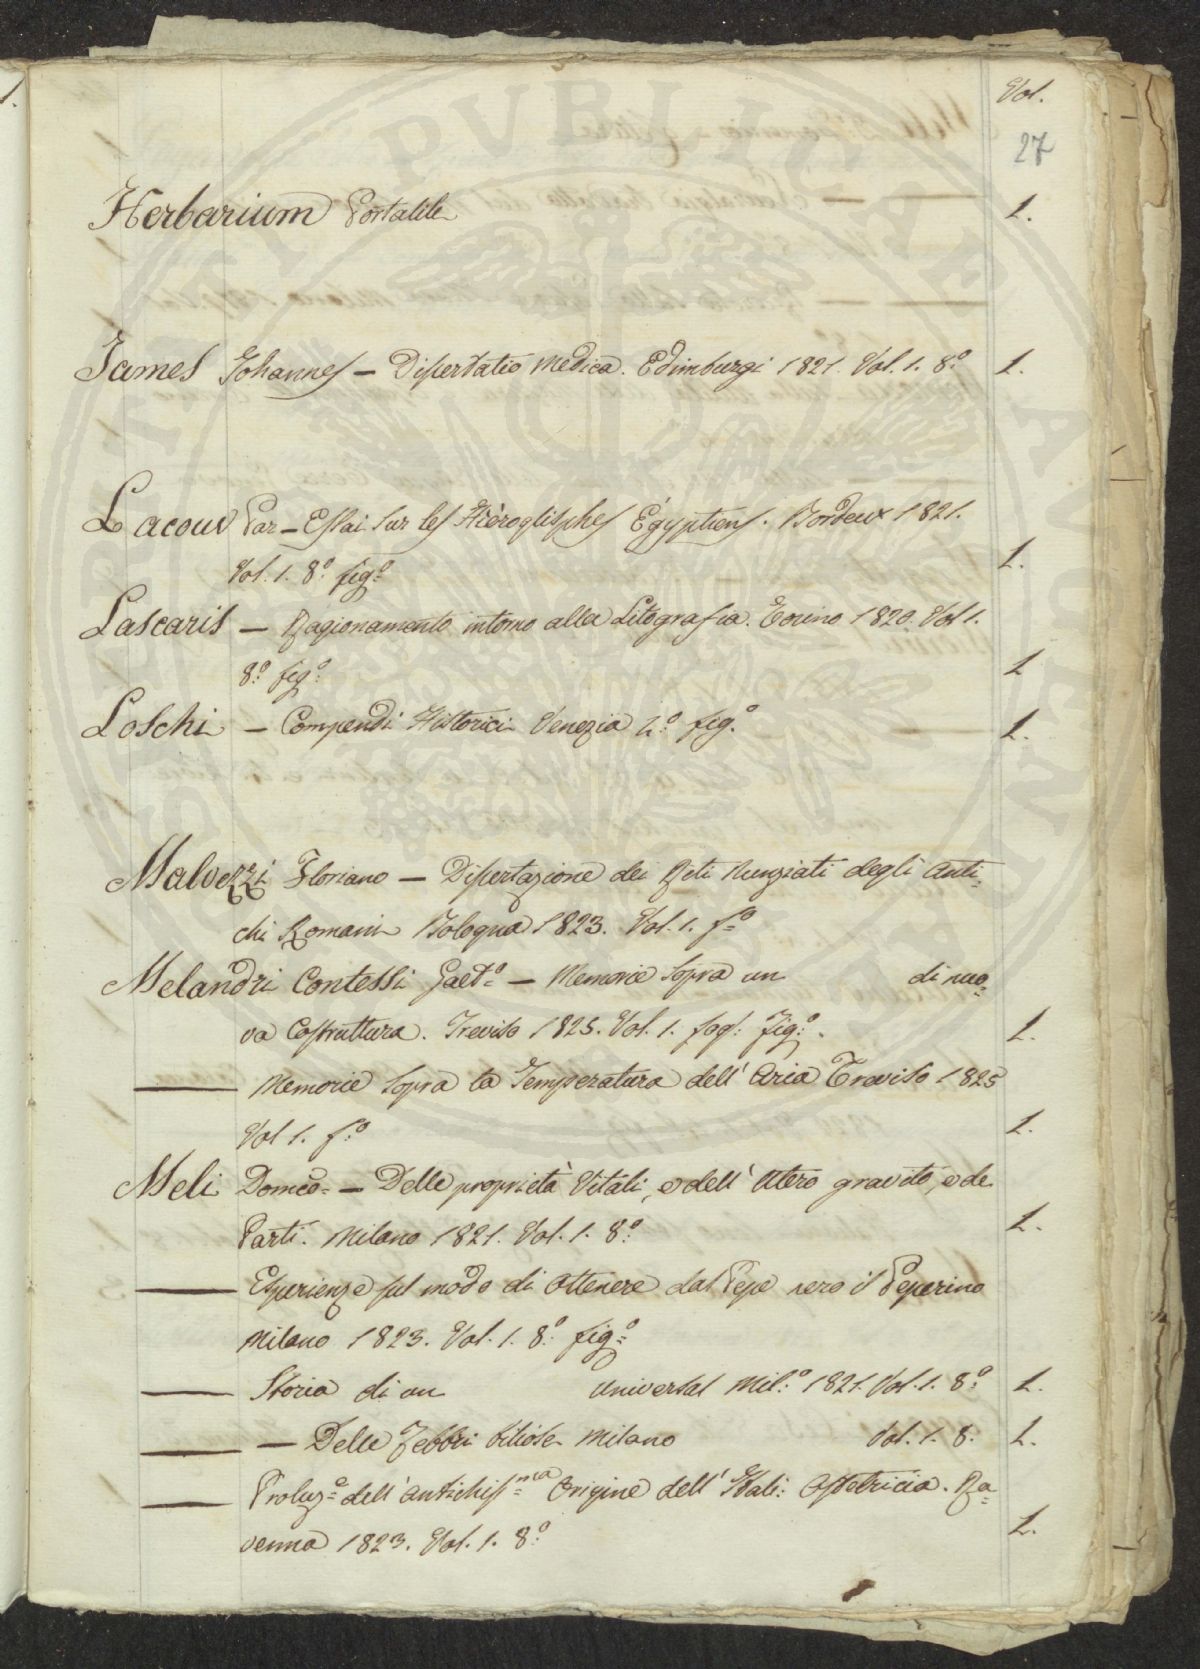 1.
Vol.
27
Herbarium Portatile 1.
James Johannes – Dissertatio Medica. Edimburgi 1821. Vol. 1. 8.º 1.
Lacour Par – Essai Sur les Hièroglisphes Égyptiens. Bordeux 1821.
Vol. 1. 8.º fig.º 1.
Lascaris – Ragionamento intorno alla Litografia. Torino 1820. Vol 1.
8.º fig.º 1
Loschi – Compendi Historici Venezia 4.º fig.º 1.
Malvezzi Floriano – Dissertazione dei Riti Nunziati degli Anti=
chi Romani Bologna 1823. Vol. 1. f.º
Melandri Contessi Gaet.º – Memorie Sopra un di nuo=
va Costruttura. Treviso 1825. Vol. 1. fogl: Fig.º. 1.
——— Memorie Sopra la Temperatura dell' Aria Treviso 1825
Vol 1. f.º 1.
Meli Domco= – Delle proprietà Vitali, e dell' Utero gravido, e de
Parti. Milano 1821. Vol. 1. 8.º 1.
——— Esperienze sul modo di Ottenere dal Pepe nero il Peperino
Milano 1823. Vol. 1. 8.º fig.º
——— Storia di un Universal Mil.º 1821. Vol. 1. 8.º 1.
——— – Delle Febbri Biliose Milano Vol. 1. 8. 1.
——— Proluz.º dell' Antichiss.ma Origine dell' Itali: Ostetricia. Ra=
venna 1823. Vol. 1. 8.º 1.